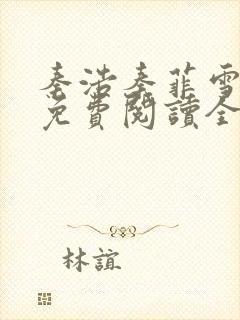 秦浩秦菲雪
免費閱讀全
林誼